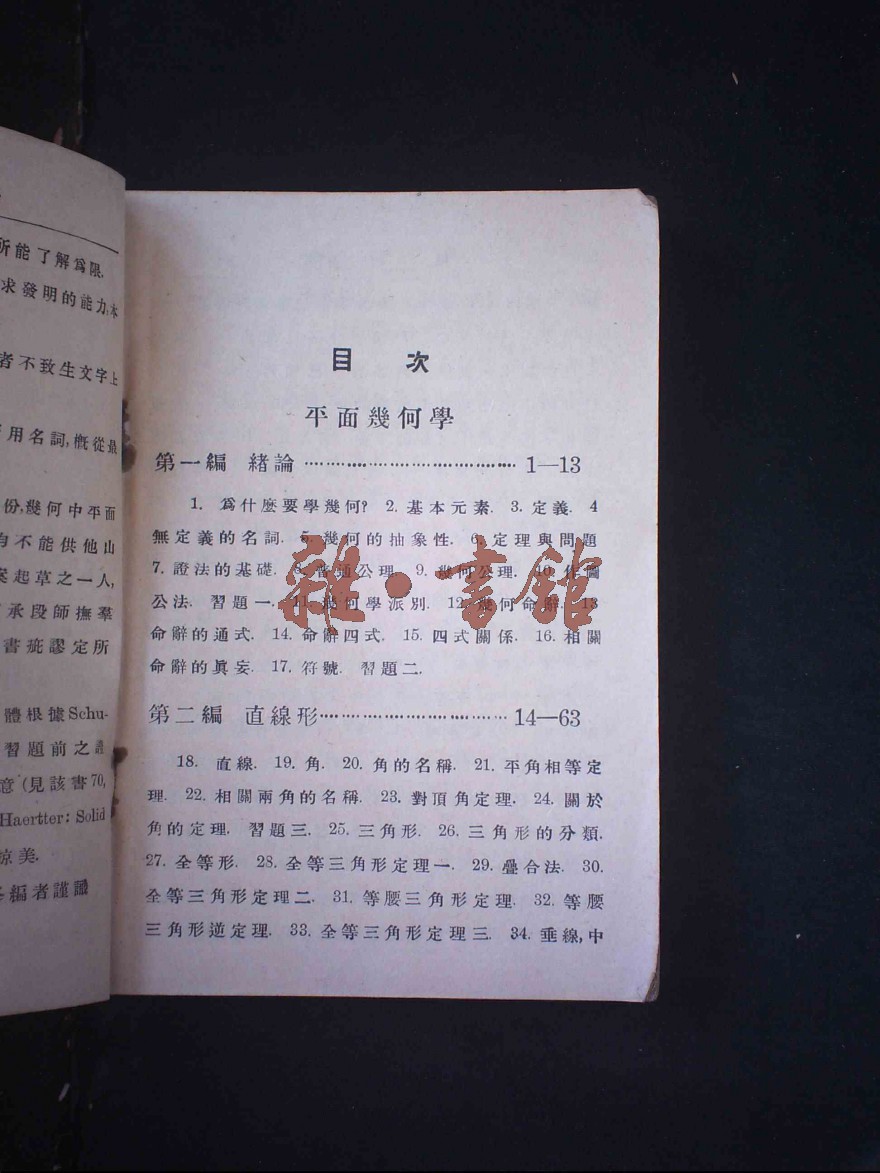 所能了解爲限.
求發明的能力,本
者不致生文字上
用名詞,槪從最
份,幾何中平面
有不能供他山
案起草之一人,
承段師撫羣
書疵謬定所
體根據Schu-
習題前之
意(見該書70,
Haertter: Solid
掠美.
編者謹識
目 次
平面幾何學
第一編 緒論 ································ 1—13
1. 爲什麽要學幾何? 2. 基本元素. 3. 定義. 4
無定義的名詞. 5. 幾何的抽象性. 6. 定理與問題
7. 證法的基礎. 8. 普通公理. 9. 幾何公理. 10. 作圖
公法. 習題一. 11. 幾何學派別. 12. 幾何命辭. 13
命辭的通式. 14. 命辭四式. 15. 四式關係. 16. 相關
命辭的眞妄. 17. 符號. 習題二.
第二編 直線形 ···························· 14—63
18. 直線. 19. 角. 20. 角的名稱. 21. 平角相等定
理. 22. 相關兩角的名稱. 23. 對頂角定理. 24. 關於
角的定理. 習題三. 25. 三角形. 26. 三角形的分類.
27. 全等形. 28. 全等三角形定理一. 29. 疊合法. 30.
全等三角形定理二. 31. 等腰三角形定理. 32. 等腰
三角形逆定理. 33. 全等三角形定理三. 34. 垂線,中
雜·書館